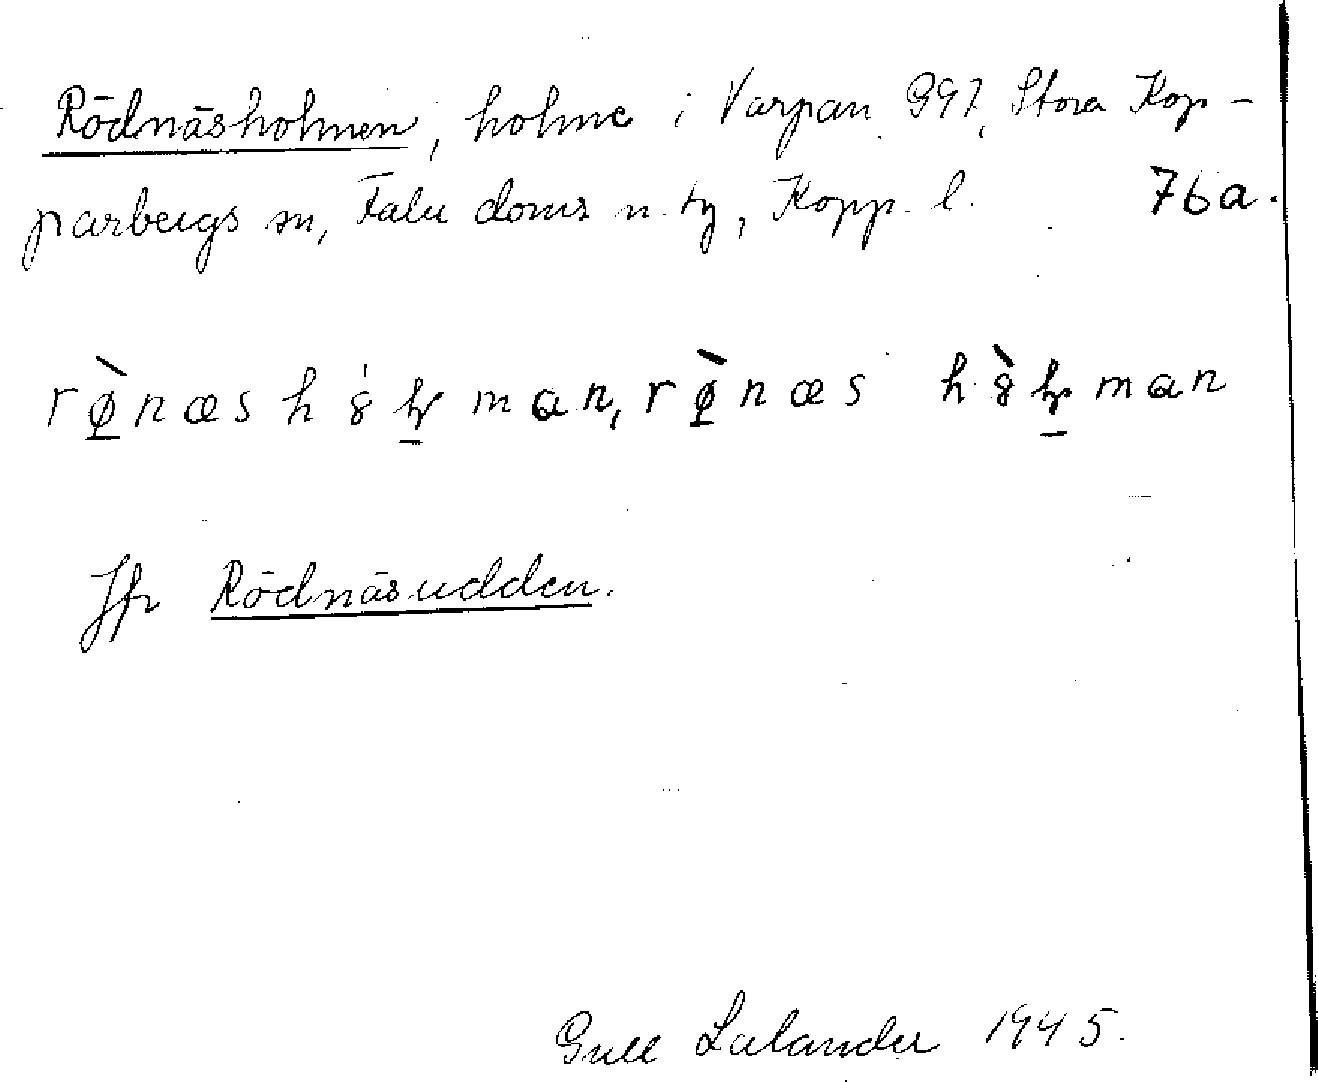 Rödnäsholmen, holme i Varpan 997, Stora Kop-
parbergs sn, Falu doms n. tg, Kopp. l. 76a.
rø̀næs h man, rø̀næs h man
Jfr Rödnäsudden.
Gull Lalander 1945.